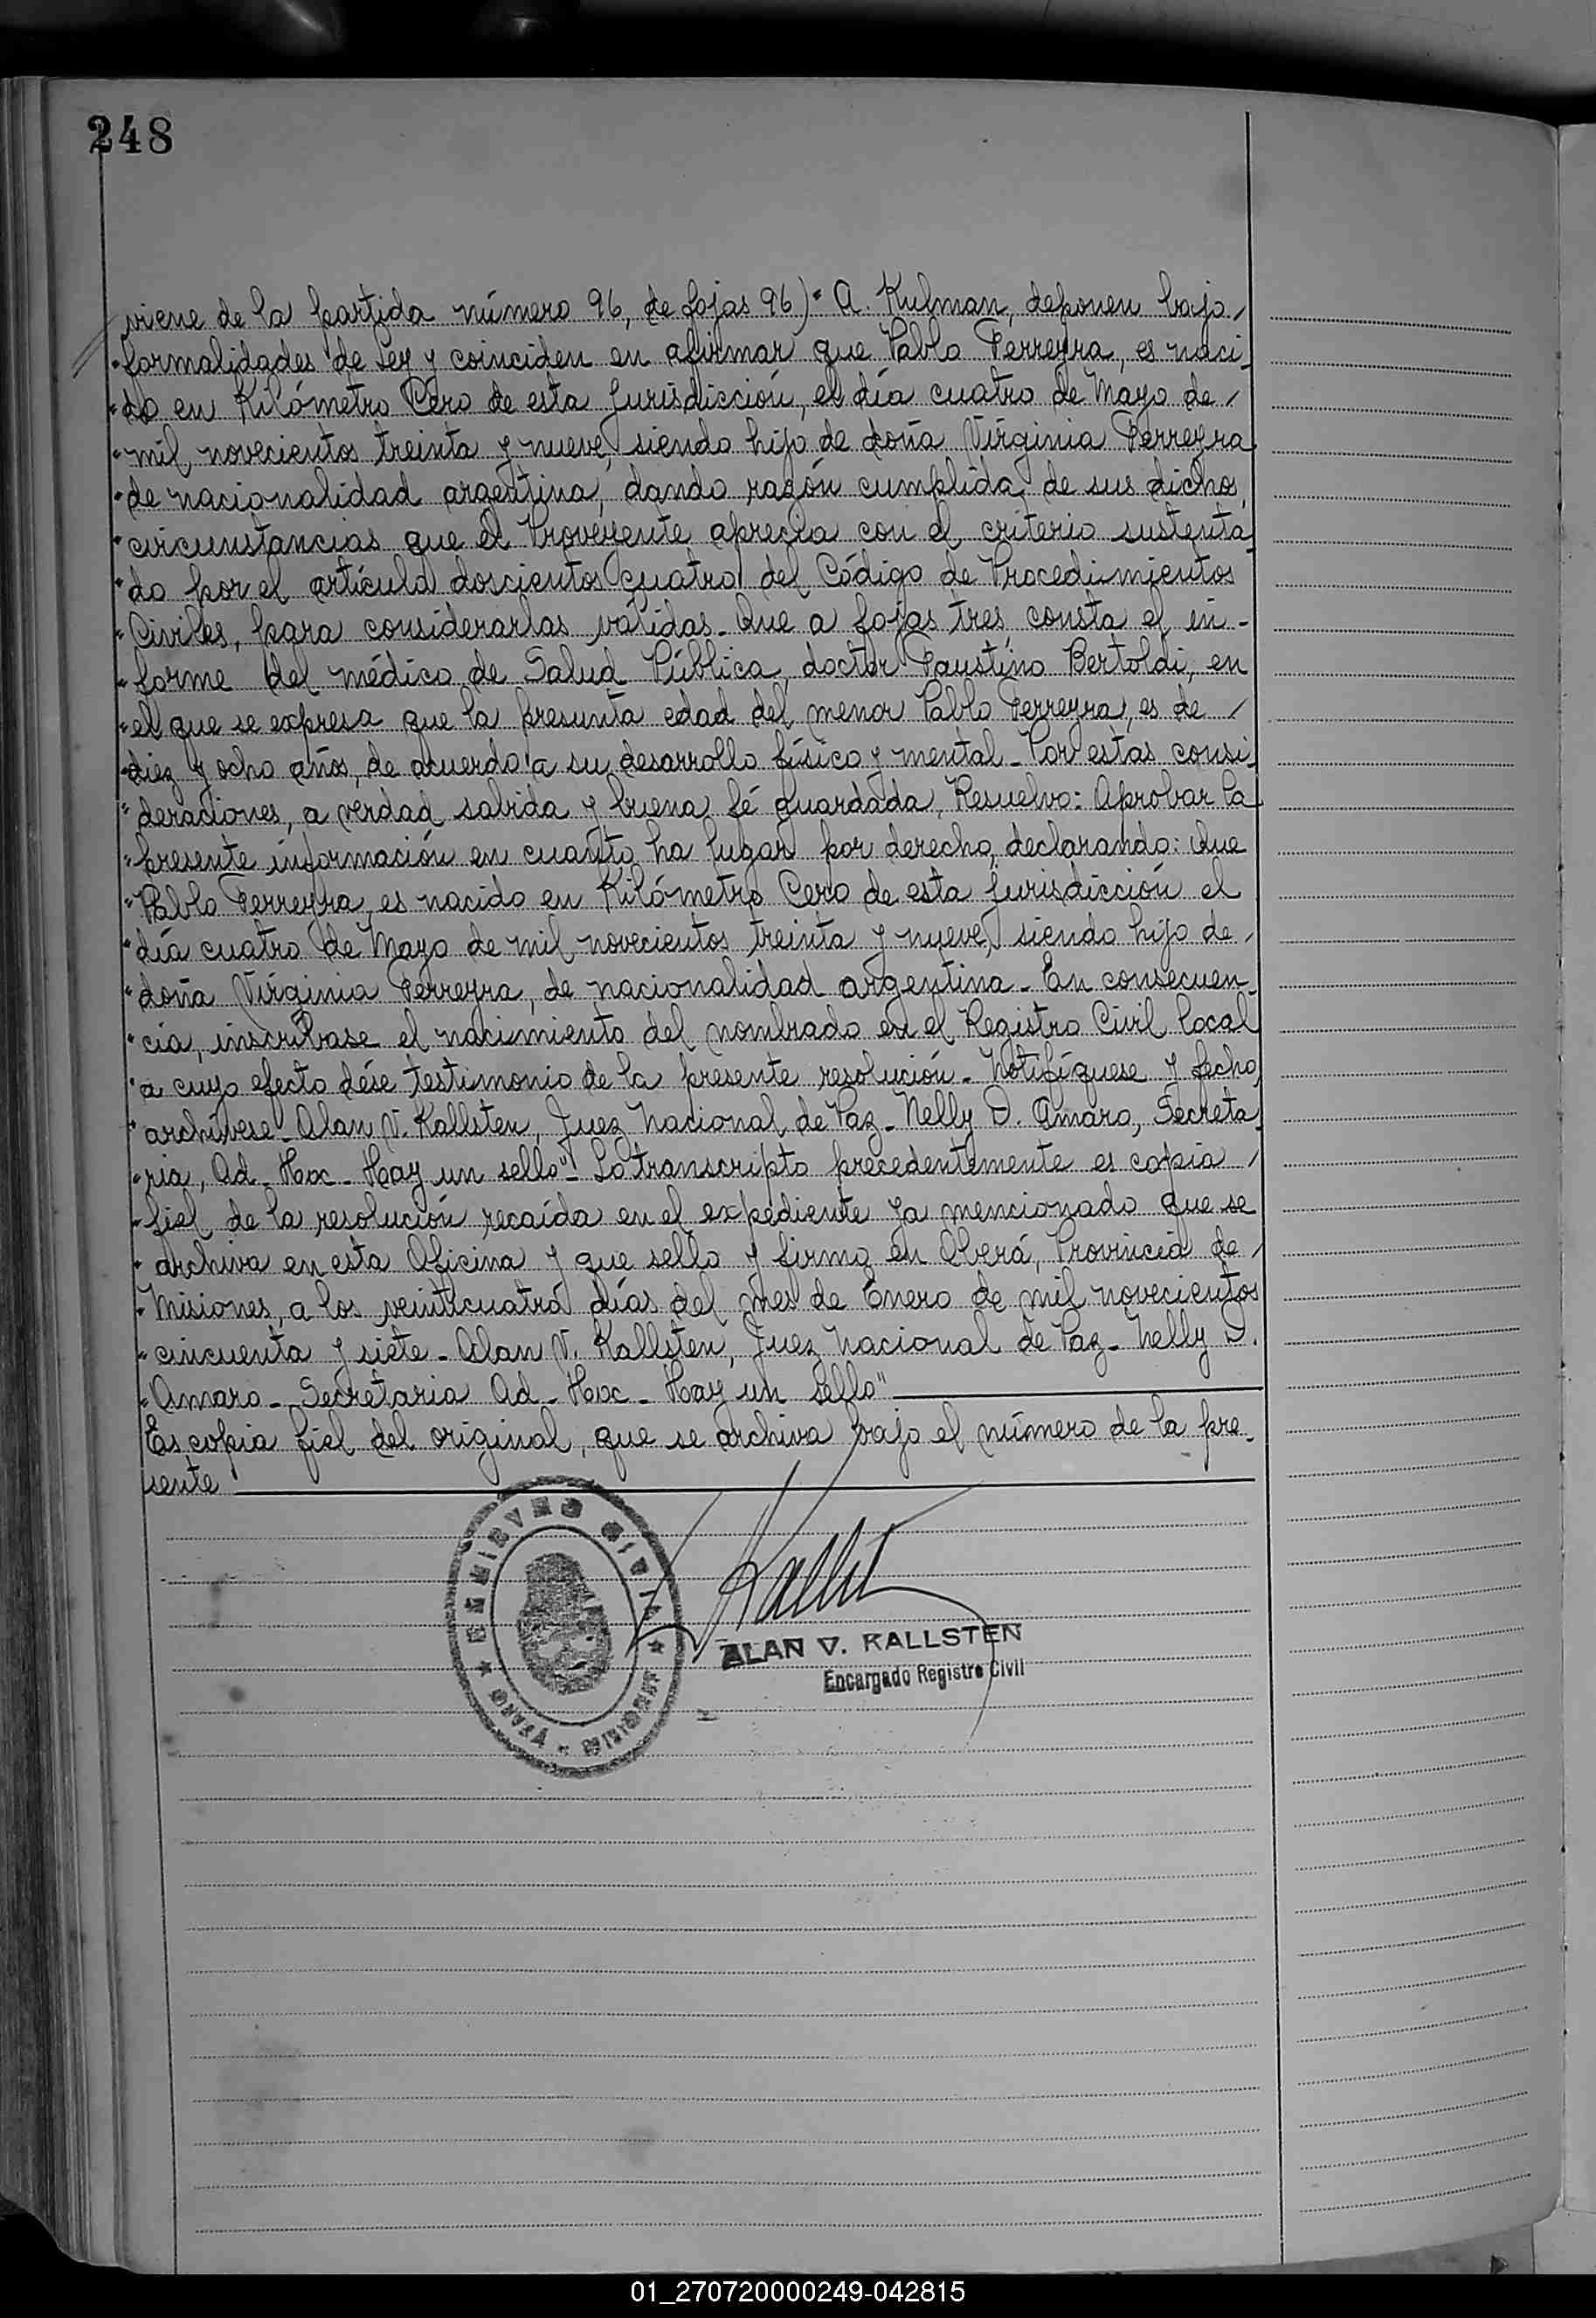 248
viene de la partida número 96, de fojas 96)" A. Kulman, deponen bajo/
"formalidades de Ley y coinciden en afirmar que Pablo Ferreyra, es naci-
"do en Kilómetro Cero de esta Jurisdicción, el día cuatro de Mayo de/
"mil novecientos treinta y nueve, siendo hijo de doña Virginia Ferreyra
"de nacionalidad argentina, dando razón cumplida de sus dichos,
"circunstancias que el Proveyente aprecia con el criterio sustenta-
"do por el artículo doscientos cuatro del Código de Procedimientos
"Civiles, para considerarlas válidas. Que a fojas tres consta el in-
"forme del médico de Salud Pública, doctor Faustino Bertoldi, en
"el que se expresa que la presunta edad del menor Pablo Ferreyra, es de/
"diez y ocho años, de acuerdo a su desarrollo físico y mental. Por estas consi-
"deraciones, a verdad sabida y buena fé guardada, Resuelvo: Aprobar la
"presente información en cuanto ha lugar por derecho, declarando: Que
"Pablo Ferreyra, es nacido en Kilómetro Cero de esta Jurisdicción el
"día cuatro de Mayo de mil novecientos treinta y nueve, siendo hijo de/
"doña Virginia Ferreyra, de nacionalidad argentina. En consecuen-
"cia, inscríbase el nacimiento del nombrado en el Registro Civil local
"a cuyo efecto dése testimonio de la presente resolución. Notifíquese y fecho,
"archívese. Alan V. Kallsten, Juez Nacional de Paz. Nelly D. Amaro, Secreta-
"ria, Ad-Hoc. Hay un sello". Lo transcripto precedentemente es copia/
"fiel de la resolución recaída en el expediente ya mencionado que se
"archiva en esta Oficina y que sello y firmo en Oberá, Provincia de/
"Misiones, a los veinticuatro días del mes de Enero de mil novecientos
"cincuenta y siete. Alan V. Kallsten, Juez Nacional de Paz. Nelly D.
"Amaro. Secretaria Ad-Hoc. Hay un sello"
Es copia fiel del original, que se archiva bajo el número de la pre-
sente
ALAN V. KALLSTEN
Encargado Registro Civil
01_270720000249-042815